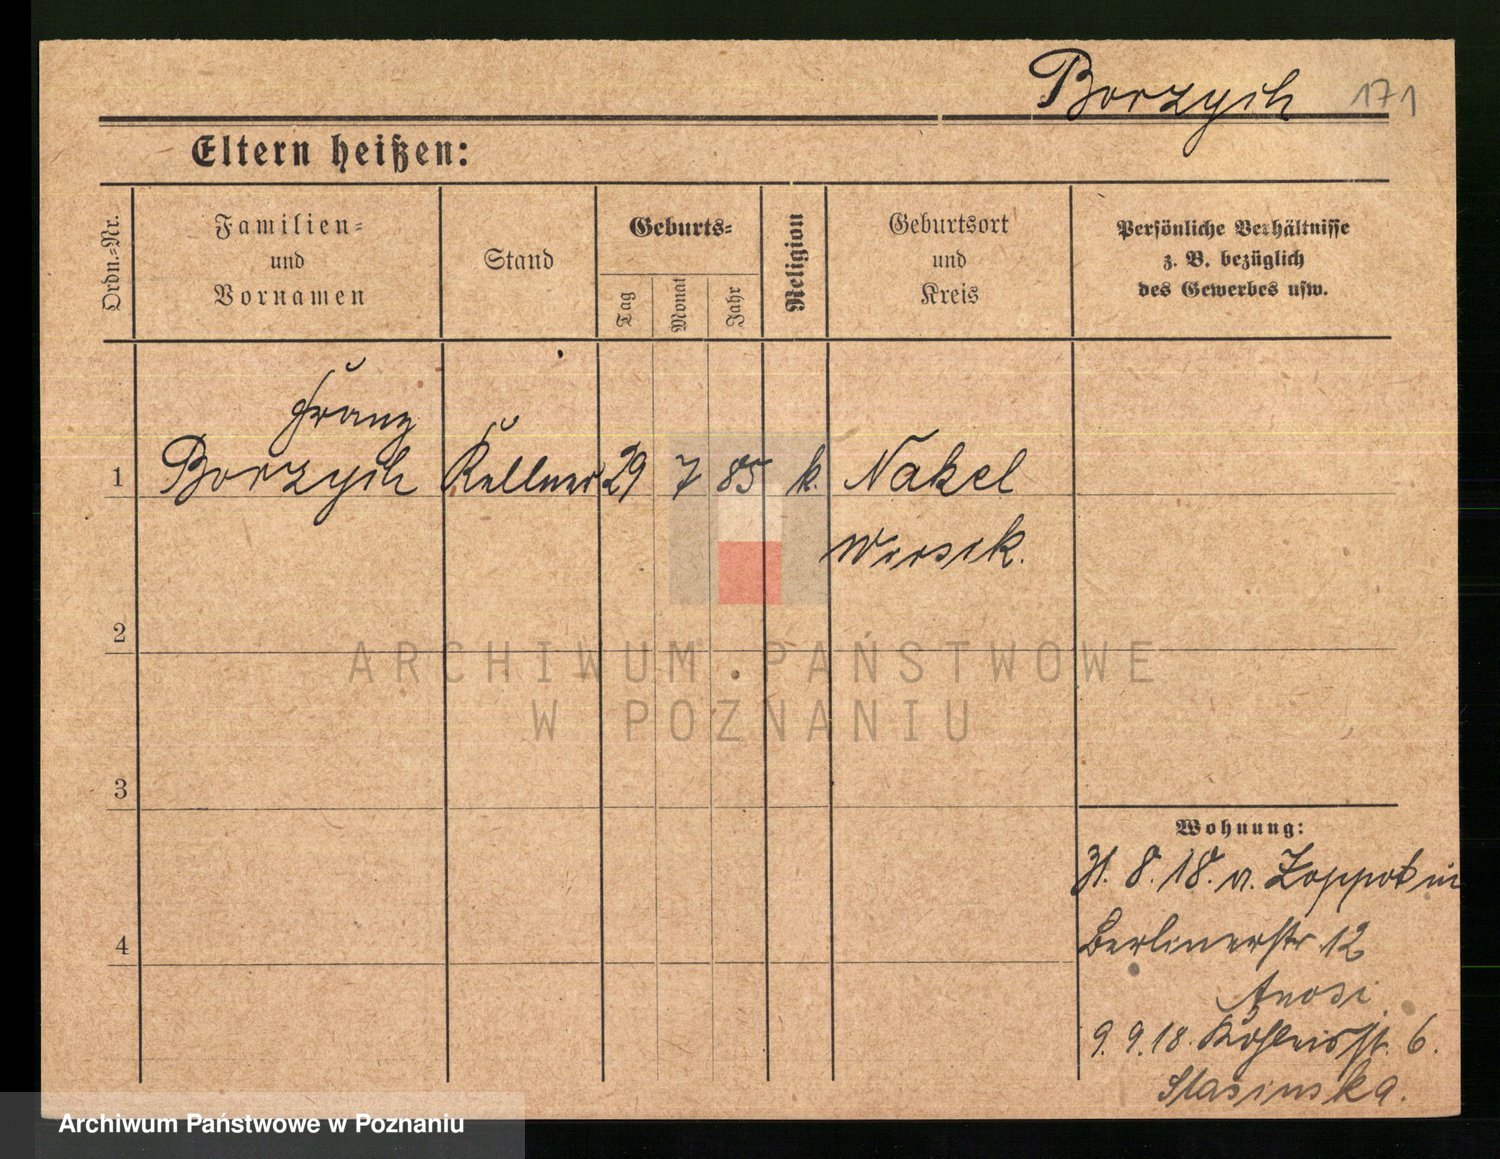 Borzych 171
Eltern heißen:
Ordn.-Nr.
Familien-
und
Vornamen
Stand
Geburts-
Tag
Monat
Jahr
Religion
Geburtsort
und
Kreis
Persönliche Verhältnisse
z. B. bezüglich
des Gewerbes usw.
Franz
1 Borzych Kellner 29 7 85 k. Nakel
Wirsik.
2
ARCHIWUM PAŃSTWOWE
W POZNANIU
3
Wohnung:
31. 8. 18. v. Zoppot in
4 Berlinerstr 12
9. 9. 18. 6.
Stasinska.
Archiwum Państwowe w Poznaniu